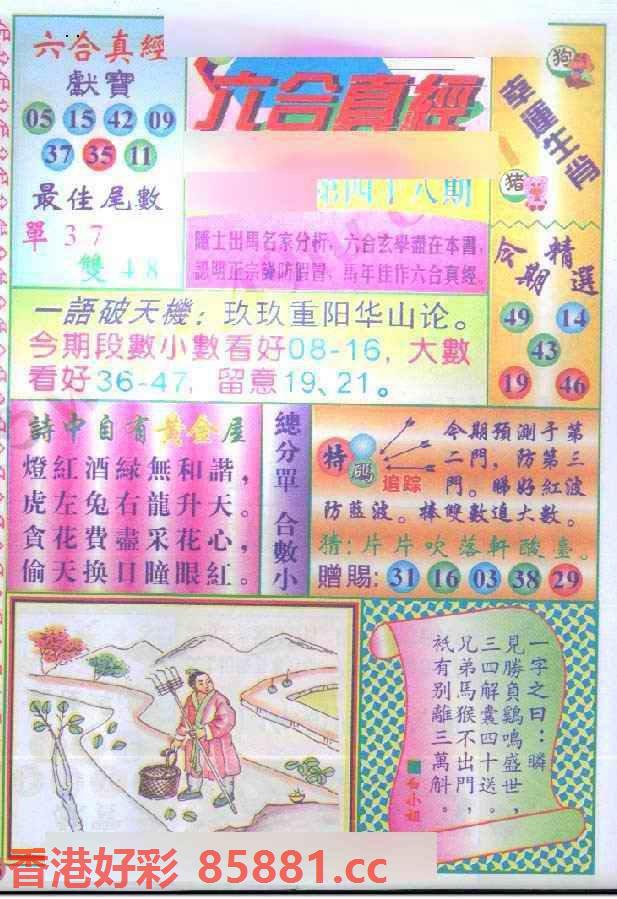 六合真經
獻寶
05 15 42 09
37 35 11
最佳尾數
單 3 7
雙 4 8
六合真經
第四十八期
隱士出馬名家分析，六合玄學盡在本書，
認明正宗謹防假冒，馬年佳作六合真經。
狗
幸運生肖
猪
今期精選
49 14
43
19 46
一語破天機：玖玖重阳华山论。
今期段數小數看好08-16，大數
看好36-47，留意19、21。
詩中自有黃金屋
燈紅酒緑無和諧，
虎左兔右龍升天。
貪花費盡采花心，
偷天换日瞳眼紅。
總分單 合數小
特碼追踪
今期預測于第
二門，防第三
門。睇好紅波
防藍波。棒雙數追大數。
猜：片片吹落軒酸臺。
贈賜：31 16 03 38 29
一字之曰：瞬
見勝負鷄鳴盛世，
三四解囊四十送。
兄弟馬猴不出門，
衹有别離三萬斛。
白小姐
香港好彩 85881.cc